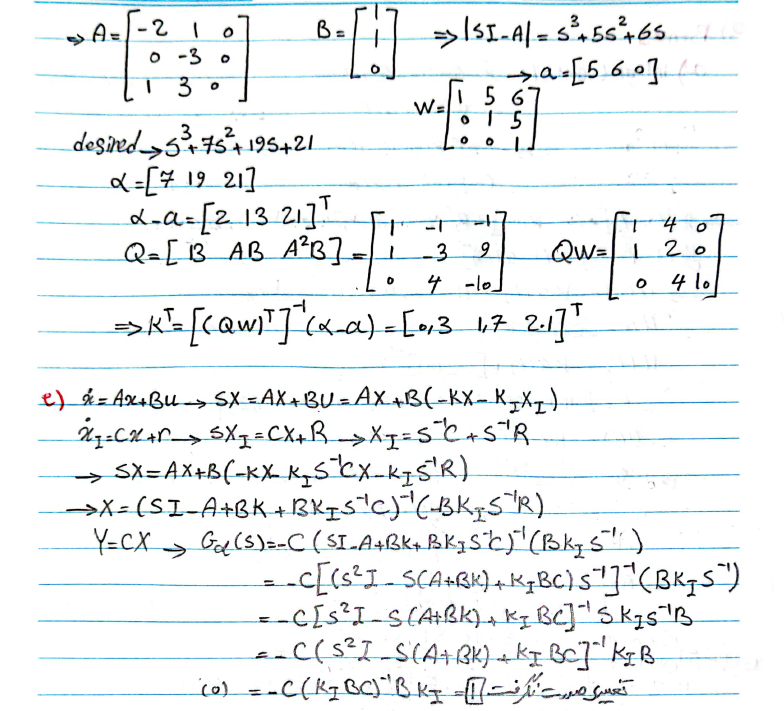 ⇒ A = [-2 1 0; 0 -3 0; 1 3 0] B = [1; 1; 0] ⇒ |SI-A| = S³+5S²+6S
→ a = [5 6 0]
W = [1 5 6; 0 1 5; 0 0 1]
desired → S³+7S²+19S+21
α = [7 19 21]
α-a = [2 13 21]ᵀ
Q = [B AB A²B] = [1 -1 -1; 1 -3 9; 0 4 -10] QW = [1 4 0; 1 2 0; 0 4 10]
⇒ Kᵀ = [(QW)ᵀ]⁻¹(α-a) = [0,3 1,7 2.1]ᵀ
e) ẋ = Ax+Bu → SX = AX+BU = AX+B(-KX-K_I X_I)
ẋ_I = Cx+r → SX_I = CX+R → X_I = S⁻¹C+S⁻¹R
→ SX = AX+B(-KX-K_I S⁻¹CX-K_I S⁻¹R)
→ X = (SI-A+BK+BK_I S⁻¹C)⁻¹(-BK_I S⁻¹R)
Y = CX → G_cl(S) = -C(SI-A+BK+BK_I S⁻¹C)⁻¹(BK_I S⁻¹)
= -C[(S²I-S(A+BK)+K_I BC)S⁻¹]⁻¹(BK_I S⁻¹)
= -C[S²I-S(A+BK)+K_I BC]⁻¹ S K_I S⁻¹B
= -C(S²I-S(A+BK)+K_I BC]⁻¹ K_I B
(0) = -C(K_I BC)⁻¹B K_I = 1 صورت نگرفت